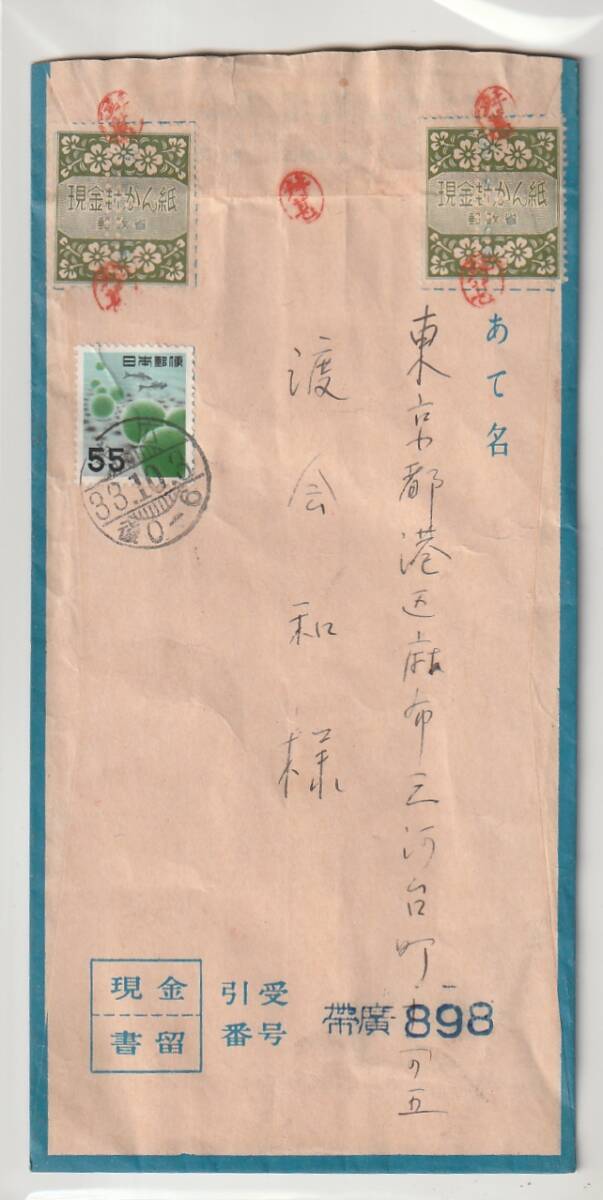 現金封かん紙
郵政省
現金封かん紙
郵政省
日本郵便
55
33.10.3
0-6
あて名
東京都港区麻布三河台町
渡会和様
現金書留
引受番号
帶廣 898